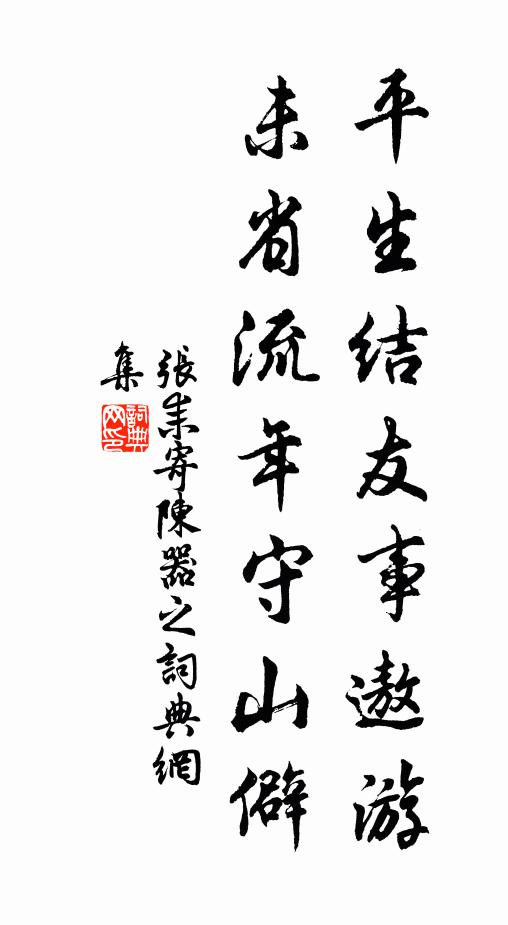 平生结友事遨游
未省流年守山僻
張耒寄陳器之詞典網
集
詞典
网印